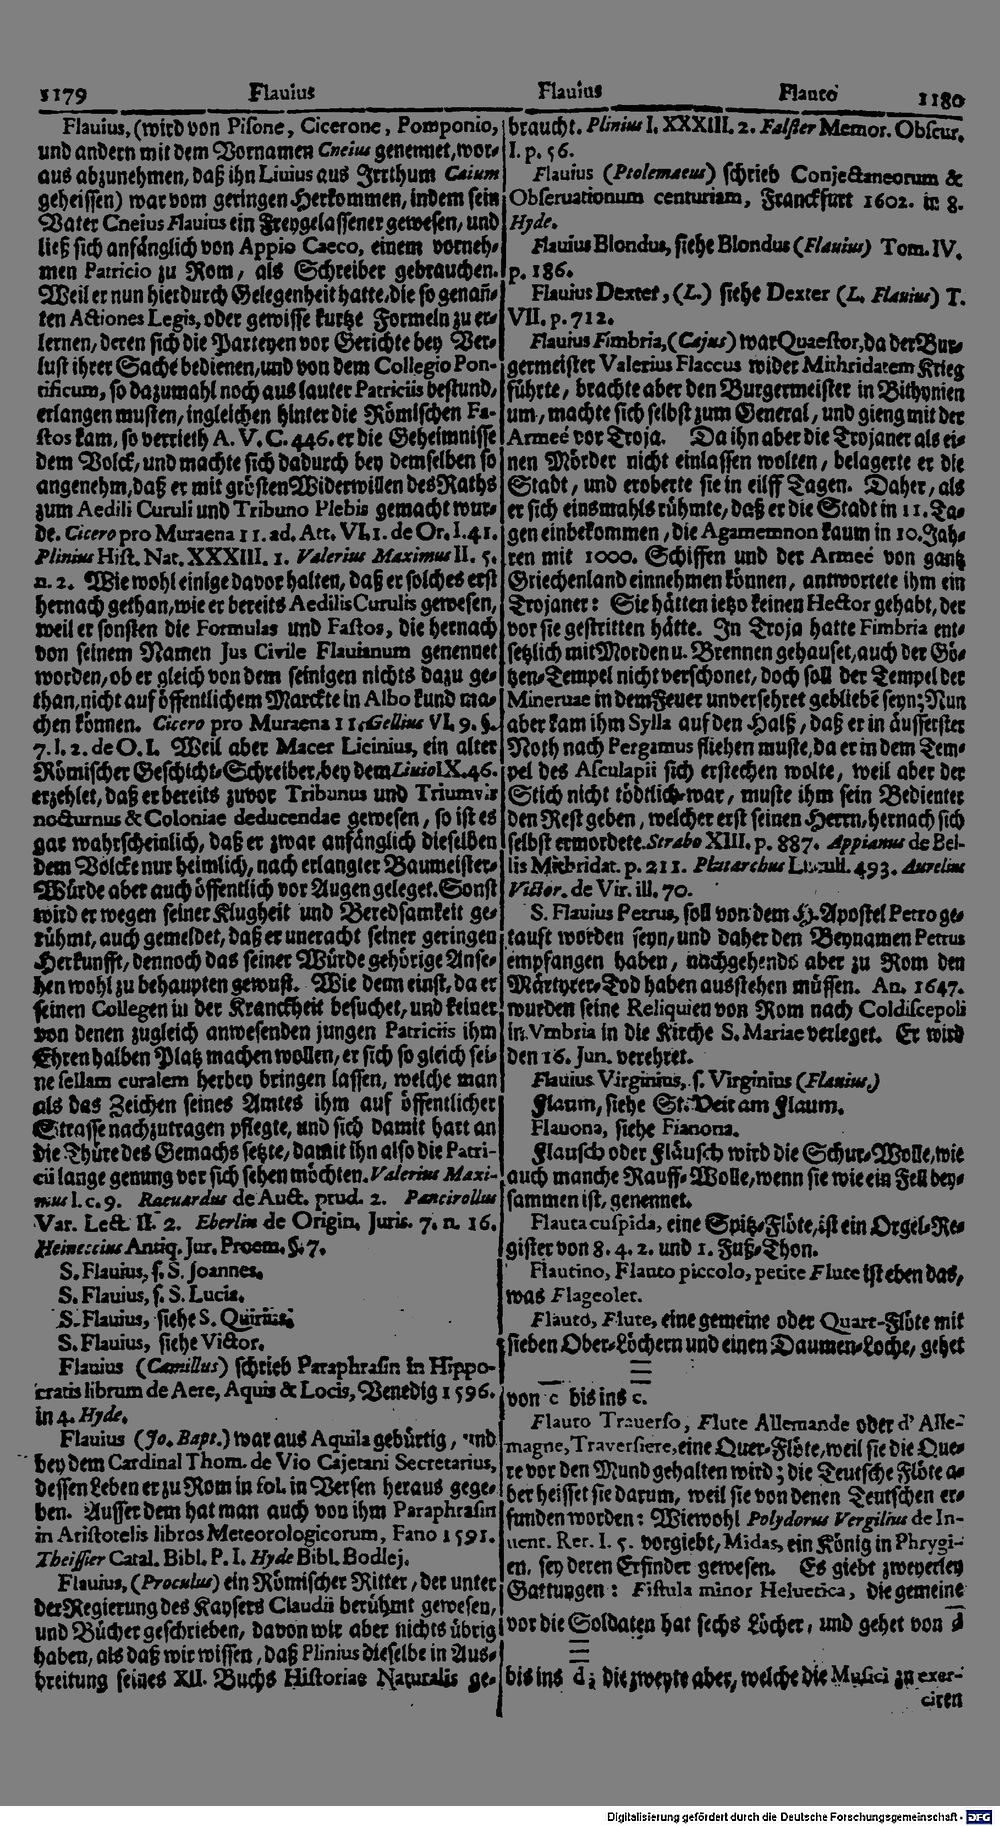 1179 Flauius Flauius Flauto 1180
Flauius, (wird von Pisone, Cicerone, Pomponio,
und andern mit dem Vornamen Cneius genennet, wor-
aus abzunehmen, daß ihn Liuius aus Irrthum Caium
geheissen) war vom geringen Herkommen, indem sein
Vater Cneius Flauius ein Freygelassener gewesen, und
ließ sich anfänglich von Appio Caeco, einem vorneh-
men Patricio zu Rom, als Schreiber gebrauchen.
Weil er nun hierdurch Gelegenheit hatte, die so genañ-
ten Actiones Legis, oder gewisse kurtze Formeln zu er-
lernen, deren sich die Parteyen vor Gerichte bey Ver-
lust ihrer Sache bedienen, und von dem Collegio Pon-
tificum, so dazumahl noch aus lauter Patriciis bestund,
erlangen musten, ingleichen hinter die Römischen Fa-
stos kam, so verrieth A. V. C. 446. er die Geheimnisse
dem Volck, und machte sich dadurch bey demselben so
angenehm, daß er mit grösten Widerwillen des Raths
zum Aedili Curuli und Tribuno Plebis gemacht wur-
de. Cicero pro Muraena 11. ad. Att. VI. 1. de Or. I. 41.
Plinius Hist. Nat. XXXIII. 1. Valerius Maximus II. 5.
n. 2. Wie wohl einige davor halten, daß er solches erst
hernach gethan, wie er bereits Aedilis Curulis gewesen,
weil er sonsten die Formulas und Fastos, die hernach
von seinem Namen Jus Civile Flauianum genennet
worden, ob er gleich von dem seinigen nichts dazu ge-
than, nicht auf öffentlichem Marckte in Albo kund ma-
chen können. Cicero pro Muraena 11. Gellius VI. 9. §.
7. l. 2. de O. I. Weil aber Macer Licinius, ein alter
Römischer Geschicht-Schreiber, bey dem Liuio IX. 46.
erzehlet, daß er bereits zuvor Tribunus und Triumvir
nocturnus & Coloniae deducendae gewesen, so ist es
gar wahrscheinlich, daß er zwar anfänglich dieselben
dem Volcke nur heimlich, nach erlangter Baumeister-
Würde aber auch öffentlich vor Augen geleget. Sonst
wird er wegen seiner Klugheit und Beredsamkeit ge-
rühmt, auch gemeldet, daß er uneracht seiner geringen
Herkunfft, dennoch das seiner Würde gehörige Anse-
hen wohl zu behaupten gewust. Wie denn einst, da er
seinen Collegen in der Kranckheit besuchet, und keiner
von denen zugleich anwesenden jungen Patriciis ihm
Ehren halben Platz machen wollen, er sich so gleich sei-
ne sellam curalem herbey bringen lassen, welche man
als das Zeichen seines Amtes ihm auf öffentlicher
Strasse nachzutragen pflegte, und sich damit hart an
die Thüre des Gemachs setzte, damit ihn also die Patri-
cii lange genung vor sich sehen möchten. Valerius Maxi-
mus l. c. 9. Raeuardus de Auct. prud. 2. Pancirollus
Var. Lect. II. 2. Eberlin de Origin. Juris. 7. n. 16.
Heineccius Antiq. Jur. Proem. §. 7.
S. Flauius, s. S. Joannes.
S. Flauius, s. S. Lucia.
S. Flauius, siehe S. Quirius.
S. Flauius, siehe Victor.
Flauius (Camillus) schrieb Paraphrasin in Hippo-
cratis librum de Aere, Aquis & Locis, Venedig 1596.
in 4. Hyde.
Flauius (Jo. Bapt.) war aus Aquila gebürtig, und
bey dem Cardinal Thom. de Vio Cajetani Secretarius,
dessen Leben er zu Rom in fol. in Versen heraus gege-
ben. Ausser dem hat man auch von ihm Paraphrasin
in Aristotelis libros Meteorologicorum, Fano 1591.
Theissier Catal. Bibl. P. I. Hyde Bibl. Bodlej.
Flauius, (Proculus) ein Römischer Ritter, der unter
der Regierung des Kaysers Claudii berühmt gewesen,
und Bücher geschrieben, davon wir aber nichts übrig
haben, als daß wir wissen, daß Plinius dieselbe in Aus-
breitung seines XII. Buchs Historiae Naturalis ge-
braucht. Plinius I. XXXIII. 2. Falster Memor. Obscur.
I. p. 56.
Flauius (Ptolemaeus) schrieb Conjectaneorum &
Obseruationum centuriam, Franckfurt 1602. in 8.
Hyde.
Flauius Blondus, siehe Blondus (Flauius) Tom. IV.
p. 186.
Flauius Dexter, (L.) siehe Dexter (L. Flauius) T.
VII. p. 712.
Flauius Fimbria, (Cajus) war Quaestor, da der Bur-
germeister Valerius Flaccus wider Mithridatem Krieg
führte, brachte aber den Burgermeister in Bithynien
um, machte sich selbst zum General, und gieng mit der
Armee vor Troja. Da ihn aber die Trojaner als ei-
nen Mörder nicht einlassen wolten, belagerte er die
Stadt, und eroberte sie in eilff Tagen. Daher, als
er sich einsmahls rühmte, daß er die Stadt in 11. Ta-
gen einbekommen, die Agamemnon kaum in 10. Jah-
ren mit 1000. Schiffen und der Armee von gantz
Griechenland einnehmen können, antwortete ihm ein
Trojaner: Sie hätten ietzo keinen Hector gehabt, der
vor sie gestritten hätte. In Troja hatte Fimbria ent-
setzlich mit Morden u. Brennen gehauset, auch der Gö-
tzen-Tempel nicht verschonet, doch soll der Tempel der
Mineruae in dem Feuer unversehret gebliebē seyn; Nun
aber kam ihm Sylla auf den Halß, daß er in äusserster
Noth nach Pergamus fliehen muste, da er in dem Tem-
pel des Asculapii sich erstechen wolte, weil aber der
Stich nicht tödtlich war, muste ihm sein Bedienter
den Rest geben, welcher erst seinen Herrn, hernach sich
selbst ermordete. Strabo XIII. p. 887. Appianus de Bel-
lis Mithridat. p. 211. Plutarchus Lucull. 493. Aurelius
Victor. de Vir. ill. 70.
S. Flauius Petrus, soll von dem H. Apostel Petro ge-
tauft worden seyn, und daher den Beynamen Petrus
empfangen haben, nachgehends aber zu Rom den
Märtyrer-Tod haben ausstehen müssen. An. 1647.
wurden seine Reliquien von Rom nach Coldiscepoli
in Vmbria in die Kirche S. Mariae verleget. Er wird
den 16. Jun. verehret.
Flauius Virginius, s. Virginius (Flauius.)
Flaum, siehe St. Veit am Flaum.
Flauona, siehe Fianona.
Flausch oder Fläusch wird die Schur-Wolle, wie
auch manche Rauff-Wolle, wenn sie wie ein Fell bey-
sammen ist, genennet.
Flauta cuspida, eine Spitz-Flöte, ist ein Orgel-Re-
gister von 8. 4. 2. und 1. Fuß-Thon.
Flautino, Flauto piccolo, petite Flute ist eben das,
was Flageolet.
Flauto, Flute, eine gemeine oder Quart-Flöte mit
sieben Ober-Löchern und einen Daumen-Loche, gehet
von c bis ins c.
Flauto Trauerso, Flute Allemande oder d' Alle-
magne, Traversiere, eine Quer-Flöte, weil sie die Que-
re vor den Mund gehalten wird; die Teutsche Flöte a-
ber heisset sie darum, weil sie von denen Teutschen er-
funden worden: Wiewohl Polydorus Vergilius de In-
uent. Rer. I. 5. vorgiebt, Midas, ein König in Phrygi-
en, sey deren Erfinder gewesen. Es giebt zweyerley
Gattungen: Fistula minor Heluetica, die gemeine
vor die Soldaten hat sechs Löcher, und gehet von d
bis ins d; die zweyte aber, welche die Musici zu exer-
ciren
Digitalisierung gefördert durch die Deutsche Forschungsgemeinschaft - DFG